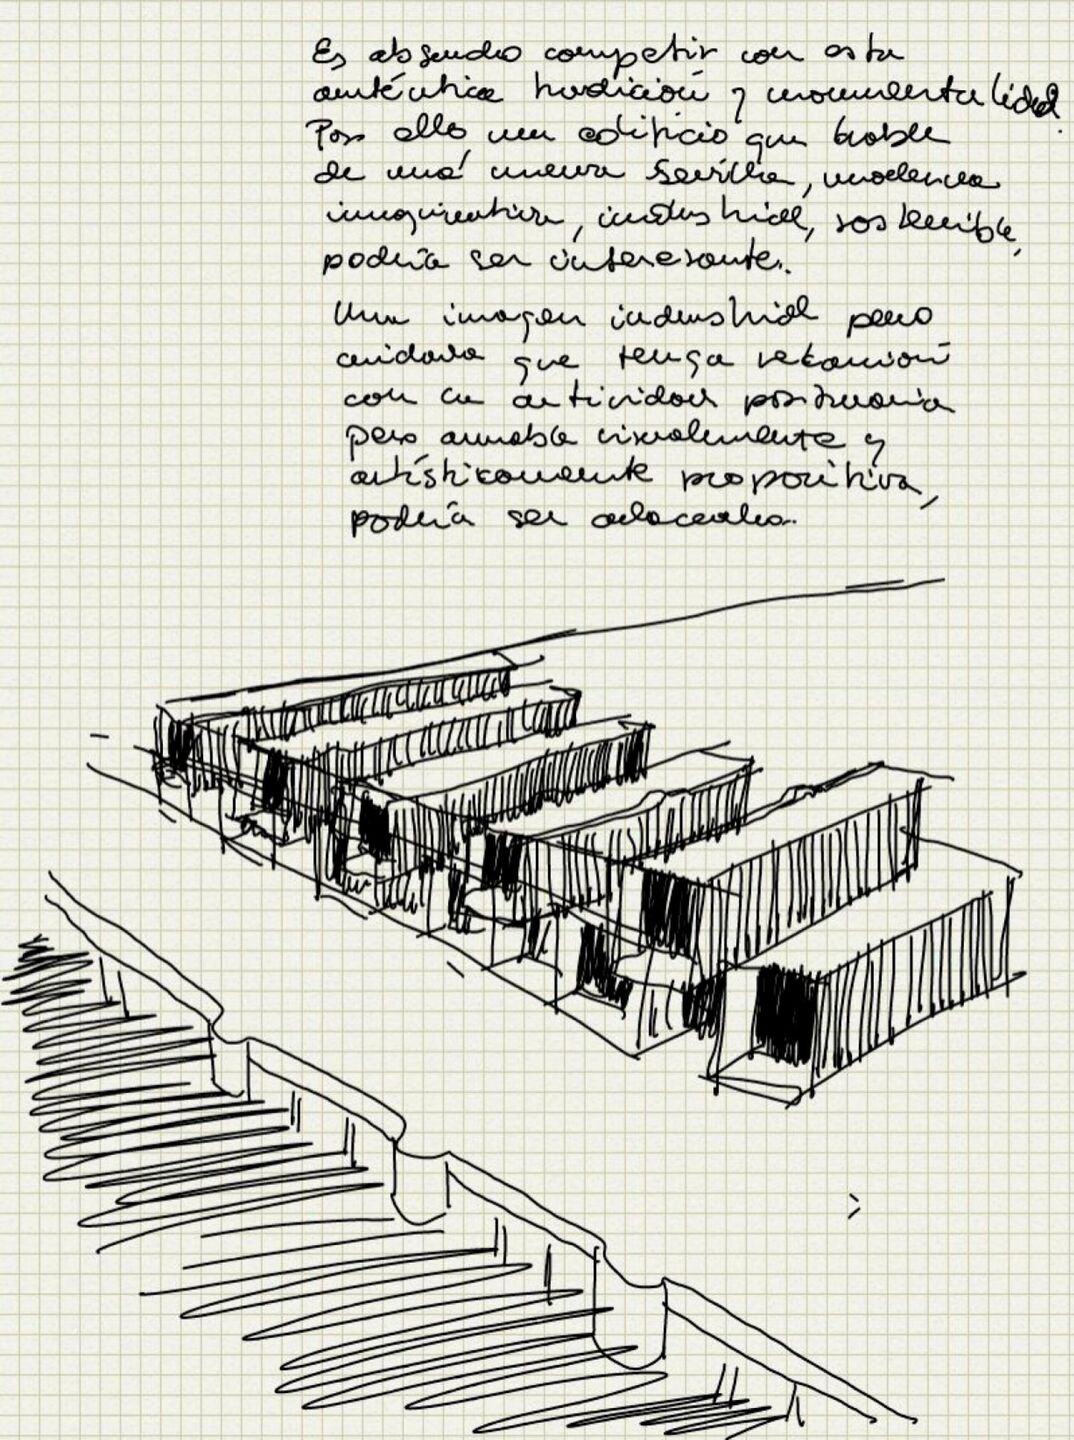 Es absurdo competir con esta
auténtica tradición y monumentalidad.
Por ello un edificio que hable
de una nueva Sevilla, moderna
imaginativa, industrial, sostenible,
podría ser interesante.
Una imagen industrial pero
cuidada que tenga relación
con la actividad portuaria
pero amable visualmente y
artísticamente propositiva,
podría ser adecuada.